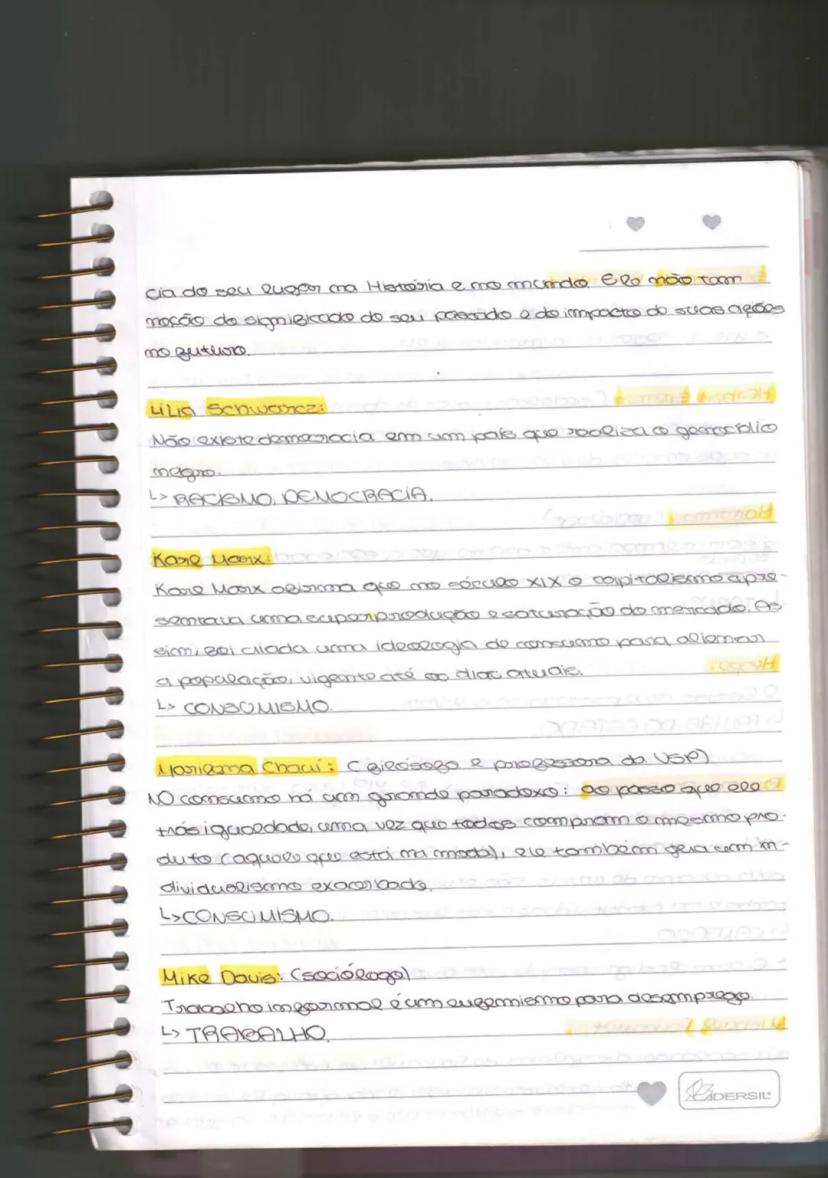 cia do seu lugar na História e no mundo. Ele não tem
noção do significado do seu passado e do impacto de suas ações
no futuro.
Lilia Schwarcz:
Não existe democracia em um país que realiza o genocídio
negro.
↳ RACISMO, DEMOCRACIA.
Karl Marx:
Karl Marx afirma que no século XIX o capitalismo apre-
sentava uma superprodução e saturação do mercado. As
sim, foi criada uma ideologia de consumo para alienar
a população, vigente até os dias atuais.
↳ CONSUMISMO.
Marilena Chauí: (filósofa e professora da USP)
NO consumo há um grande paradoxo: ao passo que ele
trás igualdade, uma vez que todos compram o mesmo pro-
duto (aquele que está na moda), ele também gera um in-
dividualismo exacerbado.
↳ CONSUMISMO.
Mike Davis: (sociólogo)
Trabalho informal é um eufemismo para desemprego
↳ TRABALHO.
IDERSIL